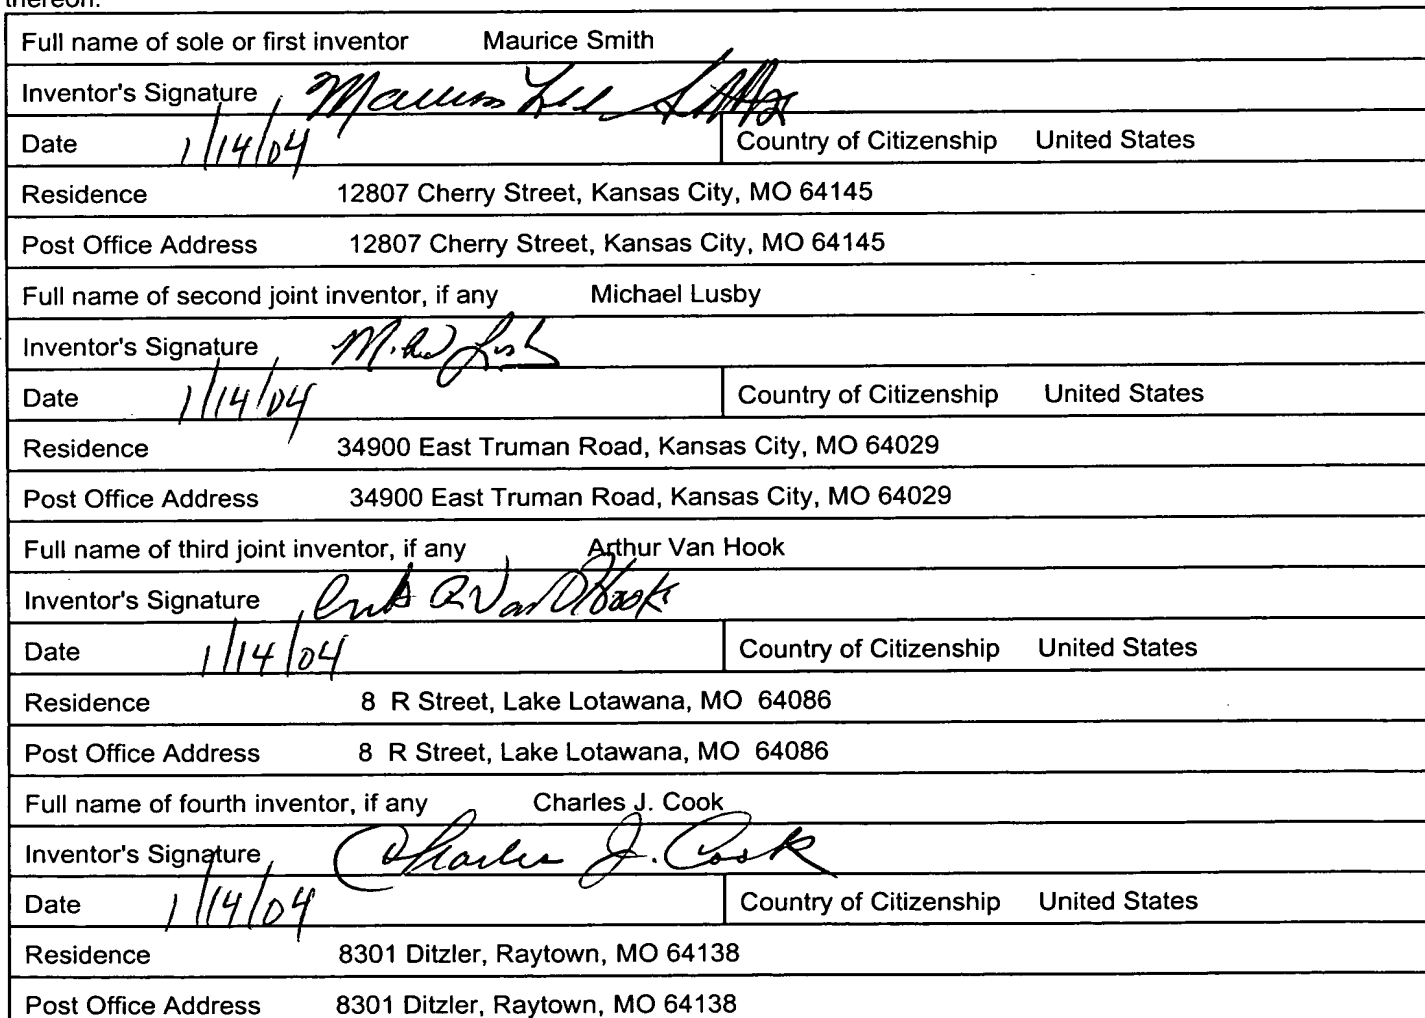 thereon.
Full name of sole or first inventor Maurice Smith
Inventor's Signature Maurice Lee Smith
Date 1/14/04 Country of Citizenship United States
Residence 12807 Cherry Street, Kansas City, MO 64145
Post Office Address 12807 Cherry Street, Kansas City, MO 64145
Full name of second joint inventor, if any Michael Lusby
Inventor's Signature
Date 1/14/04 Country of Citizenship United States
Residence 34900 East Truman Road, Kansas City, MO 64029
Post Office Address 34900 East Truman Road, Kansas City, MO 64029
Full name of third joint inventor, if any Arthur Van Hook
Inventor's Signature Van Hook
Date 1/14/04 Country of Citizenship United States
Residence 8 R Street, Lake Lotawana, MO 64086
Post Office Address 8 R Street, Lake Lotawana, MO 64086
Full name of fourth inventor, if any Charles J. Cook
Inventor's Signature Charles J. Cook
Date 1/14/04 Country of Citizenship United States
Residence 8301 Ditzler, Raytown, MO 64138
Post Office Address 8301 Ditzler, Raytown, MO 64138